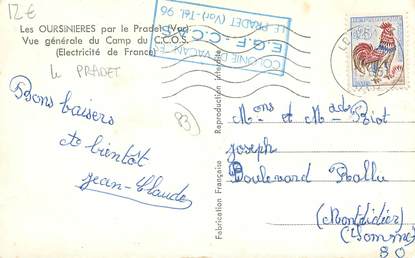 12€
Les OURSINIERES par le Pradet (Var)
Vue générale du Camp du C.C.O.S.
(Electricité de France)
Le PRADET
COLONIE DE VACANCES
E.G.F. - C.C.
LE PRADET (Var) - Tél. 96
83)
Bons baisers
et bientôt
Jean-Claude
Fabrication Française Reproduction Interdite
Mons et Mad Biot
joseph
Boulevard Hallu
(Montdidier)
(Somme)
80